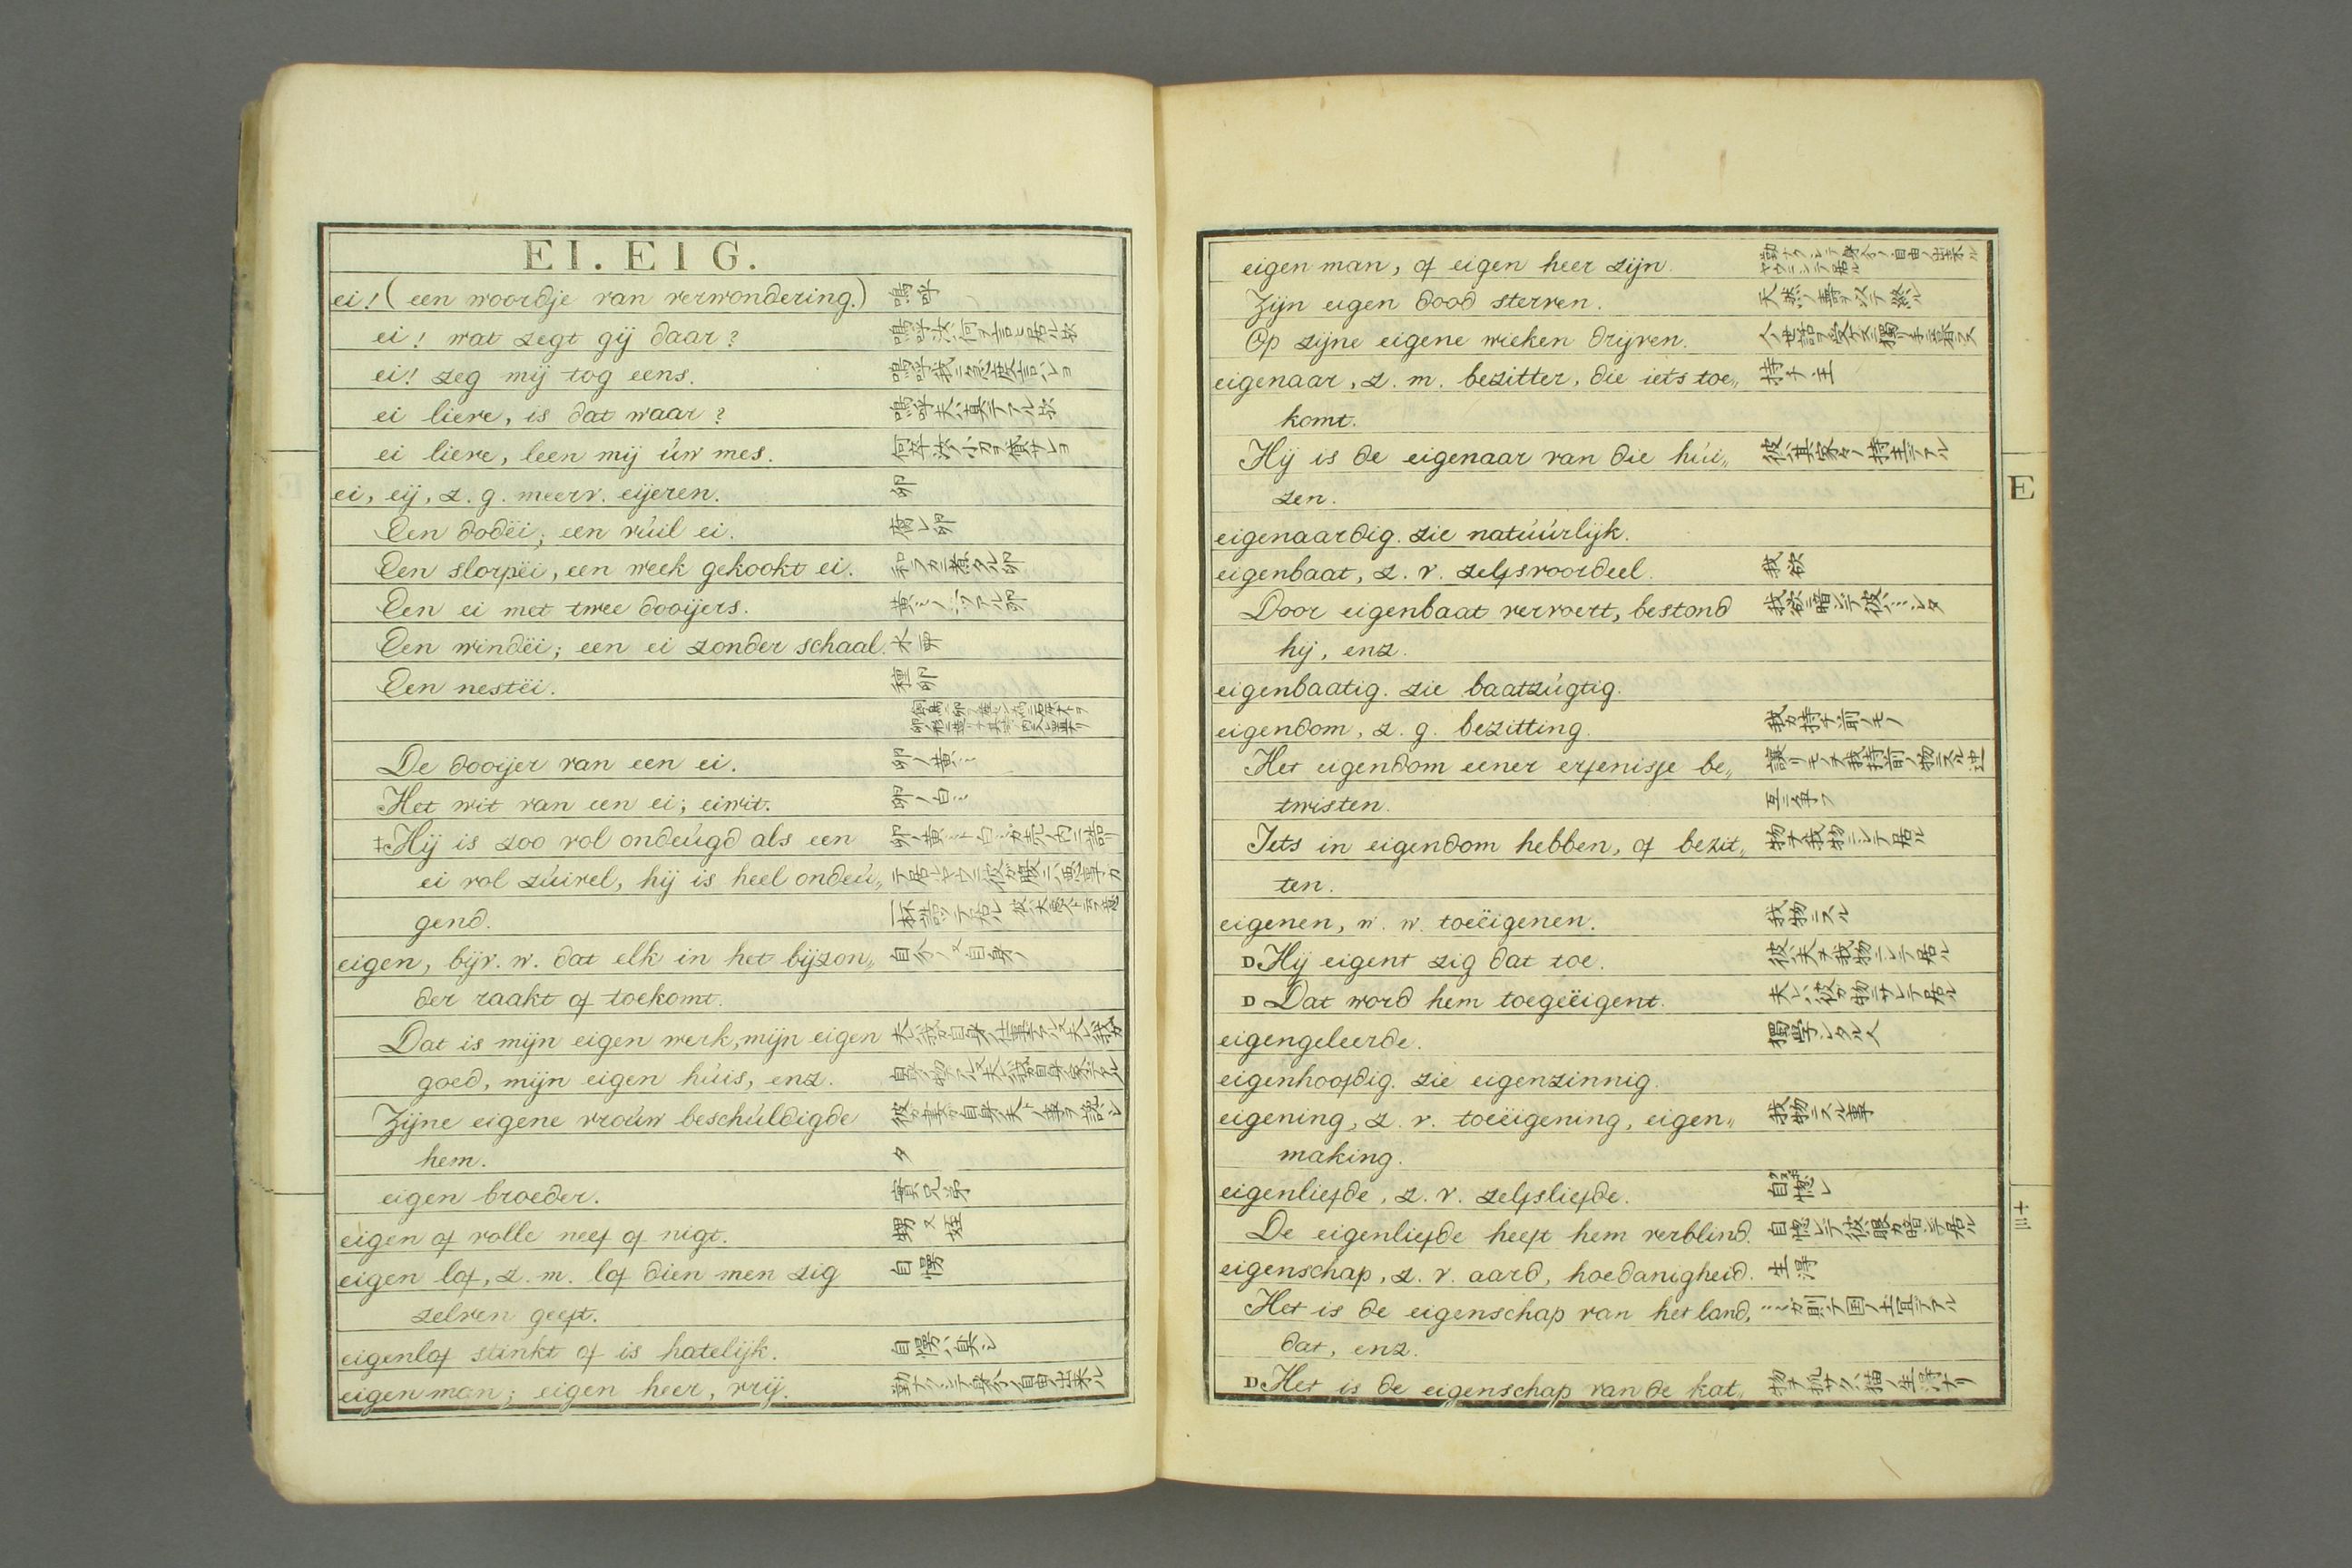 EI. EIG.
ei! (een woordje van verwondering.) 嗚呼
ei! wat zegt gij daar? 嗚呼汝何ヲ言ヒ居ル歟
ei! zeg mij tog eens.
ei lieve, is dat waar? 嗚呼夫ハ真テアル歟
ei lieve, leen mij úw mes. 何卒汝ノ小刀ヲ貸サレヨ
ei, eij, z. g. meerv. eijeren. 卵
Een dodëi; een vúil ei. 腐レ卵
Een slorpëi, een week gekookt ei. 和ラカニ煮タル卵
Een ei met twee dooijers. 黄ミノ二ツアル卵
Een windëi; een ei zonder schaal. 水卵
Een nestëi. 種卵
De dooijer van een ei. 卵ノ黄ミ
Het wit van een ei; eiwit. 卵ノ白ミ
‡Hij is zoo vol ondeúgd als een
ei vol zúivel, hij is heel ondeú„
gend.
eigen, bijv. w. dat elk in het bijzon„ 自分ノ又自身ノ
der raakt of toekomt.
Dat is mijn eigen werk, mijn eigen
goed, mijn eigen húis, enz.
Zijne eigene vroúw beschúldigde
hem. タ
eigen broeder. 實兄弟
eigen of volle neef of nigt. 甥又姪
eigen lof, z. m. lof dien men zig 自慢
zelven geeft.
eigenlof stinkt of is hatelijk. 自慢ハ臭シ
eigen man; eigen heer, vrij.
eigen man, of eigen heer zijn.
Zijn eigen dood sterven. 天然ノ寿ヲ以テ終ル
Op zijne eigene wieken drijven.
eigenaar, z. m. bezitter, die iets toe„ 持チ主
komt.
Hij is de eigenaar van die húi„ 彼ハ其家々ノ持主テアル
zen.
eigenaardig. zie natúúrlijk.
eigenbaat, z. v. zelfsvoordeel. 我欲
Door eigenbaat vervoert, bestond 我欲ニ暗レテ彼ハ…シタ
hij, enz.
eigenbaatig. zie baatzúgtig.
eigendom, z. g. bezitting. 我カ持チ前ノモノ
Het eigendom eener erfenisse be„
twisten. 互ニ争フ
Iets in eigendom hebben, of bezit„ 物ヲ我物ニシテ居ル
ten.
eigenen, w. w. toeëigenen. 我物ニスル
D Hij eigent zig dat toe. 彼ハ夫ヲ我物ニシテ居ル
D Dat word hem toegeëigent. 夫レハ彼カ物ニサレテ居ル
eigengeleerde. 獨学シタル人
eigenhoofdig. zie eigenzinnig.
eigening, z. v. toeëigening, eigen„ 我物ニスル事
making.
eigenliefde, z. v. zelfsliefde. 自惚レ
De eigenliefde heeft hem verblind. 自惚レテ彼眼カ暗レテ居ル
eigenschap, z. v. aard, hoedanigheid. 生得
Het is de eigenschap van het land, …カ則チ国ノ土宜テアル
dat, enz.
D Het is de eigenschap van de kat„ 物ヲ抓サクハ猫ノ生得ナリ
E
十三